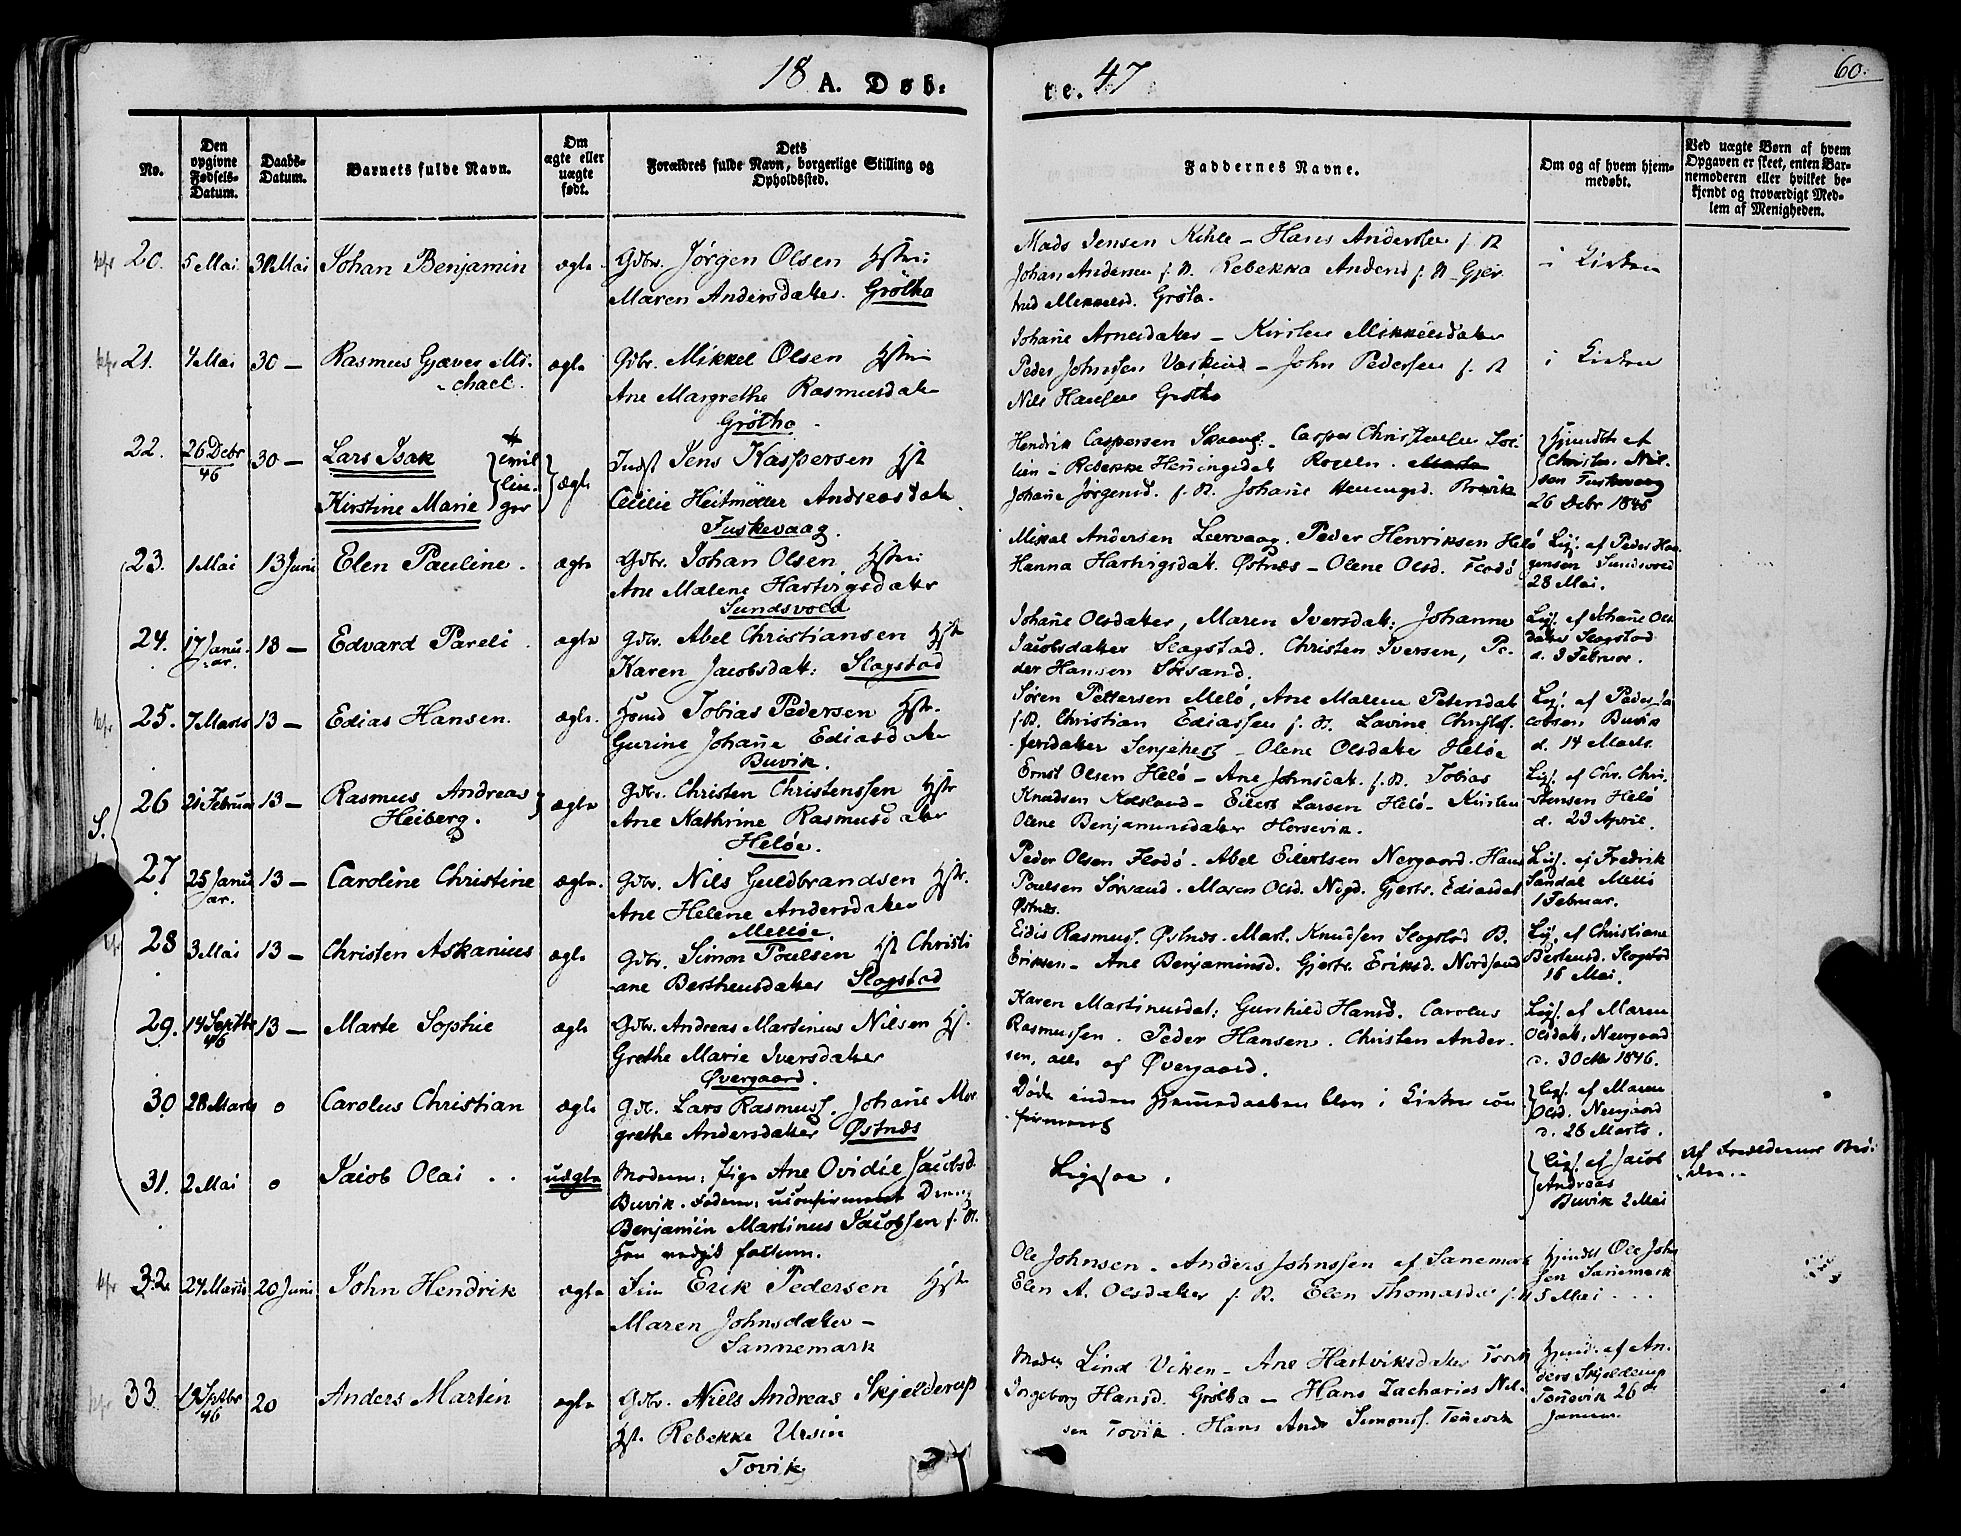 18 A. Døb=
te. 47
60.
No.
Den opgivne Fødsels-Datum.
Daabs-Datum.
Barnets fulde Navn.
Om ægte eller uægte født.
Dets Forældres fulde Navn, borgerlige Stilling og Opholdssted.
Faddernes Navne.
Om og af hvem hjemmedøbt.
Ved uægte Børn af hvem Opgaven er skeet, enten Barnemoderen eller hvilket bekjendt og troværdigt Medlem af Menigheden.
20. 5 Mai 30 Mai Johan Benjamin ægte Gdbr. Jørgen Olsen Hstr:
Maren Andersdatter. Grötha
Mads Jensen Kihle - Hans Andersen f. St
Johan Andersen f. St. Rebekka Andersd f. St Gjer
trud Mikkelsd. Grøta.
i Kirken
21. 4 Mai 30 — Rasmus Gjæver Mi-
chael. ægte Gdbr. Mikkel Olsen Hstr
Ane Margrethe Rasmusdatr
Grötha
Johañe Arnesdatter - Kirsten Mikkelsdatter
Peder Johnsen Vaskind - John Pedersen f. St
Nils Hansen Grötha
i Kirken
22. 26 Debr 46 30 — Lars Isak
Kirstine Marie
tvil
lin-
ger ægte Indst Jens Kaspersen Hst
Cecilie Heitmöller Andreasdatr
Tuskevaag.
Hendrik Caspersen - Casper Christensen
Rebekke Henningsdat
Johañe Jörgensd. f. St. Johañe Henningsd. Brevik
Hjmdøbt af
Christen Nil-
sen Tuskevaag
26 Debr 1846
23. 1 Mai 13 Juni Elen Pauline. ægte Gdbr. Johan Olsen Hstr:
Ane Malene Hartvigsdatter
Sundsvold
Mikal Andersen Leervaag. Peder Henriksen Helö
Hanna Hartvigsdatt. Østnæs - Olene Olsd. Flodö
Lig. af Peder Han
Sundsvold
28 Mai.
24. 17 Janu-
ar. 13 — Edvard Pareli ægte Gdbr. Abel Christiansen Hstr
Karen Jacobsdatt: Slogstad
Johañe Olsdatter, Maren Iversdatt: Johanne
Jacobsdatter Slagstad. Christen Iversen, Pe-
der Hansen Sörsand.
Lig. af Johañe Ols
datter Slogstad
d. 3 Februar.
25. 7 Marts 13 — Edias Hansen. ægte. Hsmd Tobias Pedersen Hstr.
Gurine Johañe Ediasdatter
Buvik.
Sören Pettersen Melö, Ane Malene Petersdat
f. St. Christian Ediassen f. St. Lavine Christof-
fersdatter Senjehest - Olene Olsdatter Helöe
Lig. af Peder Ja
cobsen Buvik
d. 14 Marts.
26 21 Februar 13 — Rasmus Andreas
Heiberg. ægte Gdbr. Christen Christenssen Hstr
Ane Kathrine Rasmusdatter
Helöe.
Ernst Olsen Helö - Ane Johnsdatt. f. St. Tobias
Knudsen - Eilert Larsen Helö - Kirsten
Olene Benjaminsdatter Horsevik.
Lig. af Chr. Chri-
stensen Helö
d. 23 April.
27 25 Janu
ar. 13 — Caroline Christine ægte. Gdbr. Nils Guldbrandsen Hstr.
Ane Helene Andersdatter
Mellöe.
Peder Olsen Flodö. Abel Eilertsen Nergaard. Hans
Poulsen Sörsand. Maren Olsd. Nrgd. Gjertr. Ediasdat
Østnæs.
Lig. af Fredrik
Sandal Mellö
1 Februar.
28 3 Mai 13 — Christen Askanius ægte Gdbr. Simon Poulsen Hst Christi
ane Berthensdatter Slogstad
Edis Rasmuss. Østnæs. Mart. Knudsen Slogstad B.
Eriksen - Ane Benjaminsd. Gjertr. Eriksd. Nordsand
Lig. af Christiane
Berthensd. Slogstad
16 Mai.
29. 14 Septbr 46 13 — Marte Sophie ægte Gdbr. Andreas Martinius Nilsen Hst.
Grethe Marie Iversdatter
Øvergaard.
Karen Martinusdat; Gunhild Hansd. Carolus
Rasmussen. Peder Hansen. Christen Ander-
sen, alle af Øvergaard.
Lig. af Maren
Olsdatt, Nergaard
d. 3 Octbr 1846.
30 28 Marts o Carolus Christian ægte Gdb. Lars Rasmuss. Johañe Mar
grethe Andersdatter Østnæs
Døde inden Hjemmedaaben blev i Kirken con
firmeret
Lig. af Maren
Olsd. Nergaard
d. 28 Marts.
31. 2 Mai o Jacob Olai . . uægte Moderen: Pige Ane Ovidie Jacobsd.
Buvik. Faderen: uconfirmeret Dreng
Benjamin Martinus Jacobsen f. St.
Han nedgik fattern.
Ligesaa.
Lig. af Jacob
Andreas
Buvik 2 Mai
Af Forældrenes
32 24 Marts 20 Juni John Hendrik ægte Erik Pedersen Hstr
Maren Johnsdatter -
Sannemark
Ole Johnsen - Anders Johnssen af Sanemark
Elen A. Olsdatter f. St. Elen Thomasdr f. St
Hjmdbt Ole John
sen Sanemark
5 Mai . . .
33 13 Septbr 46 20 Anders Martin ægte Gdbr. Niels Andreas Skjelderup
Hst. Rebekke Ursin
Tovik
Mads Lind Viken - Ane Hartviksdatter Tovik
Ingeborg Hansd. Grötha - Hans Zacharias Nil-
sen Tovik. Hans Andr Simons. Tenevik
Hjmd. af An-
ders Skjelderup
Tenevik 26de
Januar.